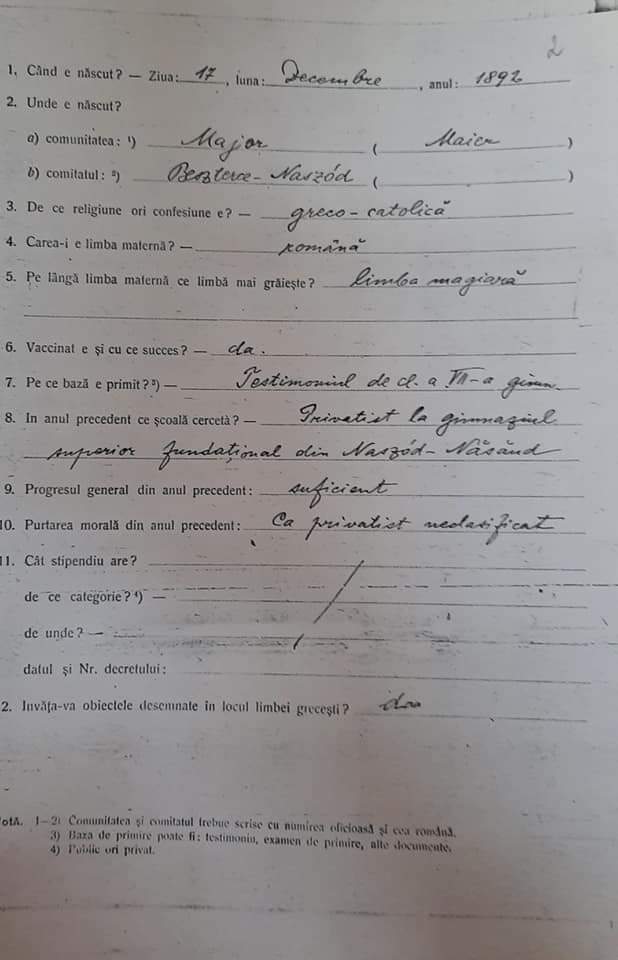 2
1. Când e născut? — Ziua: 17, luna: Decembre, anul: 1892
2. Unde e născut?
a) comunitatea: ¹) Major ( Maier )
b) comitatul: ²) Beszterce-Naszód ( )
3. De ce religiune ori confesiune e? — greco-catolică
4. Carea-i e limba maternă? — română
5. Pe lângă limba maternă ce limbă mai grăiește? limba magiară
6. Vaccinat e și cu ce succes? — da.
7. Pe ce bază e primit? ³) — Testimoniul de cl. a VII-a gimn.
8. In anul precedent ce școală cercetà? — Privatist la gimnaziul
superior fundațional din Naszód-Năsăud
9. Progresul general din anul precedent: suficient
10. Purtarea morală din anul precedent: Ca privatist neclasificat
11. Cât stipendiu are?
de ce categorie? ⁴) —
de unde? —
datul și Nr. decretului:
2. Invăța-va obiectele desemnate în locul limbei grecești? da
otă. 1—2) Comunitatea și comitatul trebue scrise cu numirea oficioasă și cea română.
3) Baza de primire poate fi: testimoniu, examen de primire, alte documente.
4) Public ori privat.